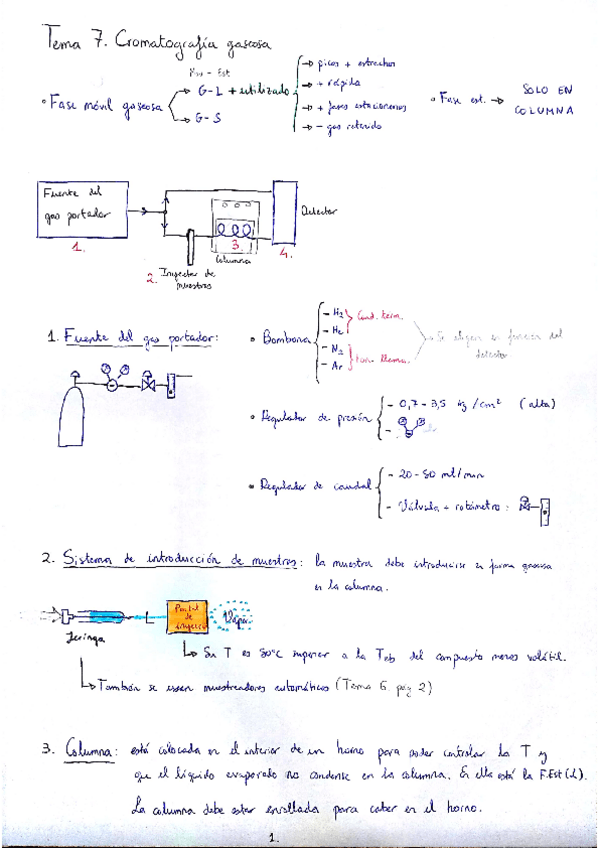 Tema 7. Cromatografía gaseosa
Fase móvil gaseosa
Mov - Est
G-L + utilizado
G-S
→ picos + estrechos
→ + rápida
→ + fases estacionarias
→ - gas retenido
Fase est. → SOLO EN COLUMNA
Fuente del gas portador
1.
2. Inyector de muestras
3.
Columna
4.
Detector
1. Fuente del gas portador:
Bombona
- H2
- He
Cond. term.
- N2
- Ar
Ioni. llama.
Se eligen en función del detector
Regulador de presión
- 0,7 - 3,5 kg/cm² (alta)
-
Regulador de caudal
- 20-50 ml/min
- Válvula + rotámetro:
2. Sistema de introducción de muestras: la muestra debe introducirse en forma gaseosa
en la columna.
Jeringa
Portal de inyección
Vapor
Su T es 50ºC superior a la Teb del compuesto menos volátil.
También se usan muestreadores automáticos (Tema 6 pág 2)
3. Columna: está colocada en el interior de un horno para poder controlar la T y
que el líquido evaporado no condense en la columna. En ella está la F.Est (L).
La columna debe estar enrollada para caber en el horno.
1.